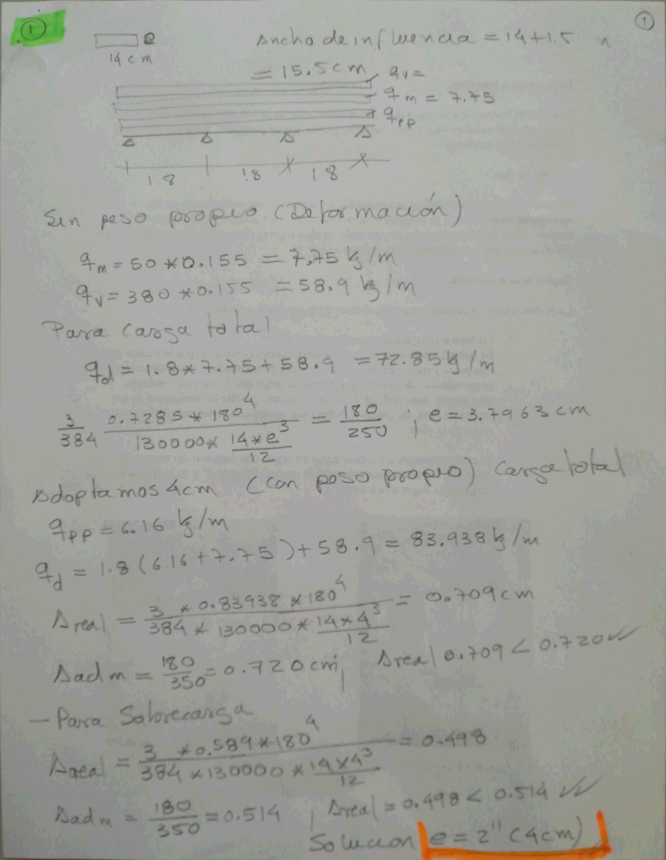 1
1
e
14 cm
Ancho de influencia = 14+1.5
= 15.5cm
qv=
qm = 7.75
qpp
1.8 1.8 1.8
Sin peso propio (Deformación)
qm = 50*0.155 = 7,75 kg/m
qv = 380*0.155 = 58.9 kg/m
Para carga total
qd = 1.8*7.75+58.9 = 72.85 kg/m
3/384 0.7285*180^4 / 130000* 14*e^3/12 = 180/250 ; e = 3.7963 cm
Adoptamos 4cm (con peso propio) carga total
qpp = 6.16 kg/m
qd = 1.8(6.16+7.75)+58.9 = 83.938 kg/m
Δreal = 3*0.83938*180^4 / 384*130000* 14*4^3/12 = 0.709cm
Δadm = 180/350 = 0.720cm; Δreal 0.709 < 0.720 ✓
- Para Sobrecarga
Δreal = 3*0.589*180^4 / 384*130000* 14*4^3/12 = 0.498
Δadm = 180/350 = 0.514 ; Δreal = 0.498 < 0.514 ✓
Solucion e = 2" (4cm)